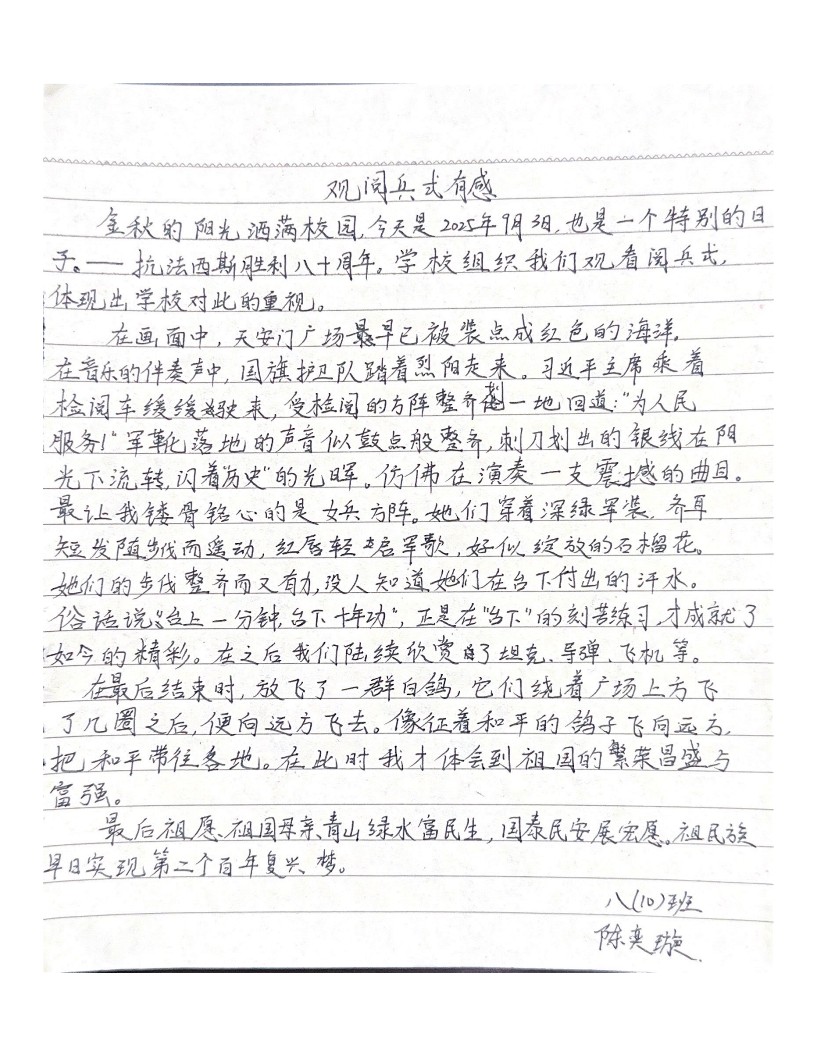 观阅兵式有感
金秋的阳光洒满校园,今天是2025年9月3日,也是一个特别的日
子。——抗法西斯胜利八十周年。学校组织我们观看阅兵式,
体现出学校对此的重视。
在画面中,天安门广场早已被装点成红色的海洋。
在音乐的伴奏声中,国旗护卫队踏着烈阳走来。习近平主席乘着
检阅车缓缓驶来,受检阅的方阵整齐划一地回道:"为人民
服务!"军靴落地的声音似鼓点般整齐,刺刀划出的银线在阳
光下流转,闪着"历史"的光晖。仿佛在演奏一支震撼的曲目。
最让我镂骨铭心的是女兵方阵。她们穿着深绿军装,齐耳
短发随步伐而遥动,红唇轻启军歌,好似绽放的石榴花。
她们的步伐整齐而又有力,没人知道她们在台下付出的汗水。
俗话说:"台上一分钟,台下十年功",正是在"台下"的刻苦练习,才成就了
如今的精彩。在之后我们陆续欣赏了坦克、导弹、飞机等。
在最后结束时,放飞了一群白鸽,它们绕着广场上方飞
了几圈之后,便向远方飞去。像征着和平的鸽子飞向远方,
把和平带往各地。在此时我才体会到祖国的繁荣昌盛与
富强。
最后祖愿、祖国母亲、青山绿水富民生,国泰民安展宏愿。祖民族
早日实现第二个百年复兴梦。
八(10)班
陈奕璇